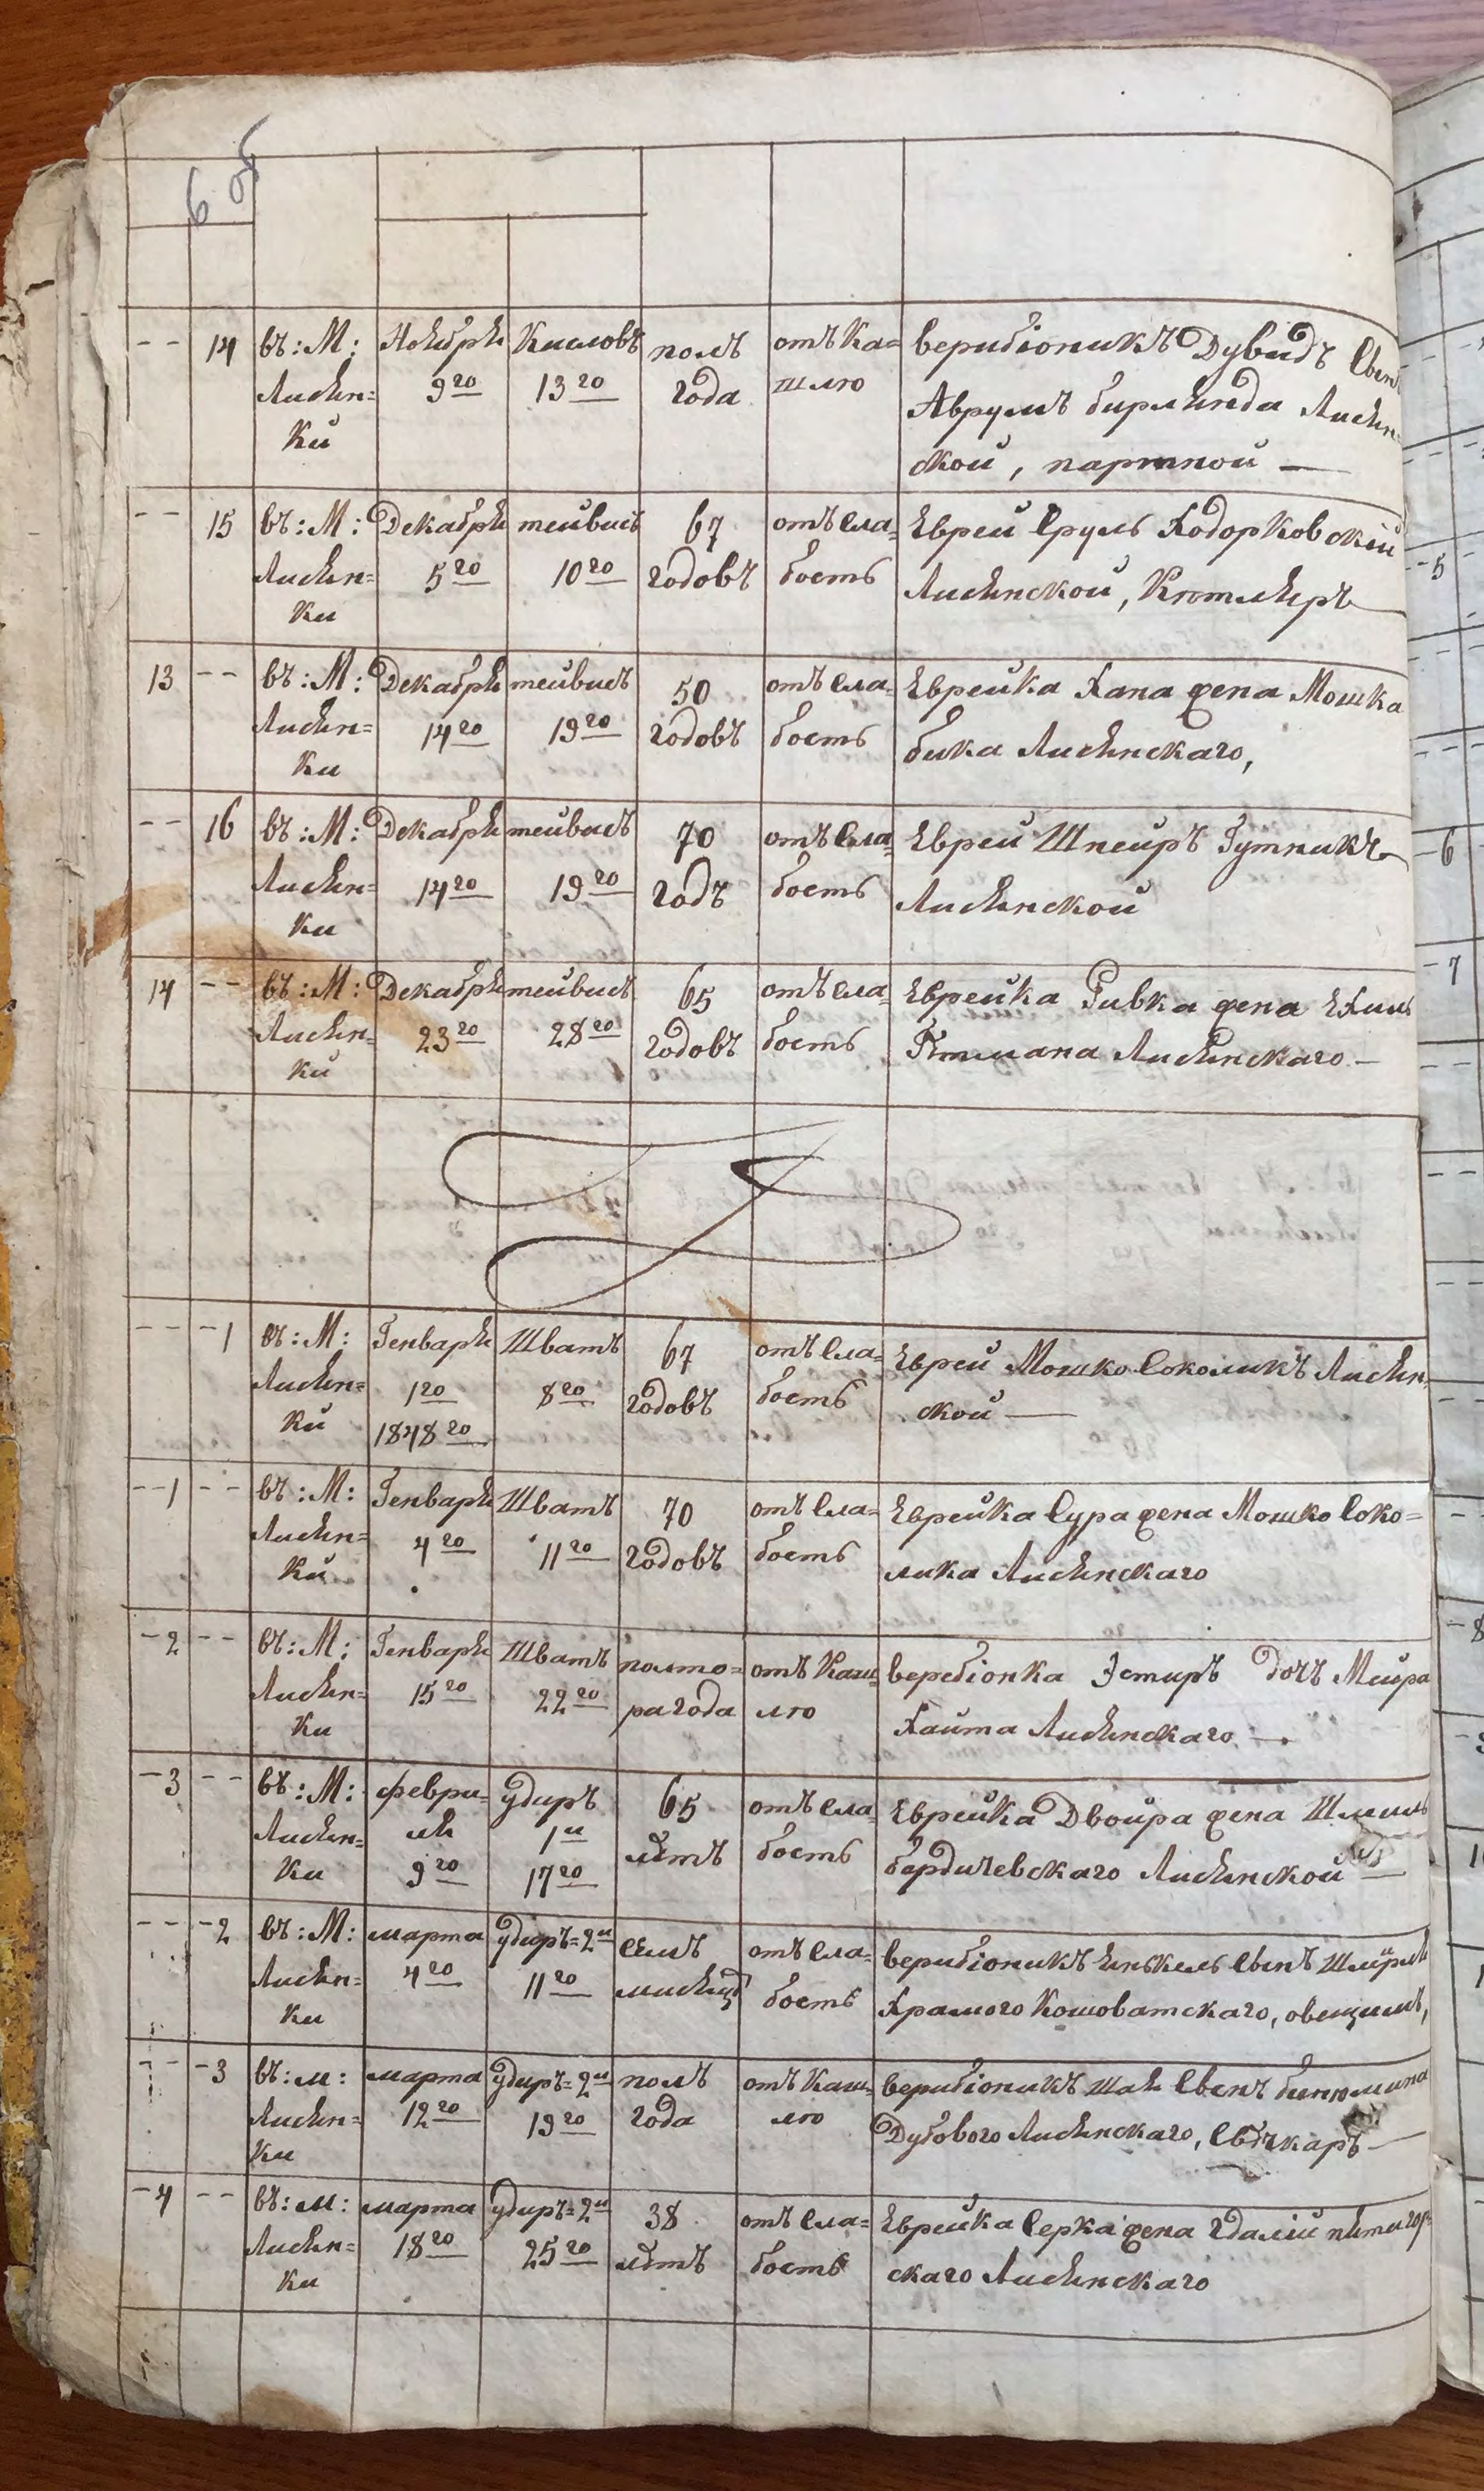 6 об
14 въ: М: Лисян=
ки
Ноября
9го
Кисловъ
13го
полъ
года
отъ Ка=
шлю
верибіоникъ Дувидъ Сынъ
Аврумъ бирлянда Лисян=
ской, партной —
15 въ: М:
Лисян=
ки
Декабря
5го
тейвисъ
10го
67
годовъ
отъ сла=
бость
Еврей Сруль Ходорковской
Лисянской, Котляръ
13 въ: М:
Лисян=
ки
Декабря
14го
тейвисъ
19го
50
годовъ
отъ сла=
бость
Еврейка Хана жена Мошка
бика Лисянскаго,
16 въ: М:
Лисян=
ки
Декабря
14го
тейвисъ
19го
70
годъ
отъ Сла=
бость
Еврей Шнейръ Гутникъ
Лисянской
14 въ: М:
Лисян=
ки
Декабря
23го
тейвисъ
28го
65
годовъ
отъ сла=
бость
Еврейка Ривка жена Ехиль
Лисянскаго —
1 въ: М:
Лисян=
ки
Генваря
1го
1848го
Шватъ
8го
67
годовъ
отъ Сла=
бость
Еврей Мошко Соколикъ Лисян=
ской —
1 въ: М:
Лисян=
ки
Генваря
4го
Шватъ
11го
70
годовъ
отъ Сла=
бость
Еврейка Сура жена Мошко Соко=
лика Лисянскаго
2 въ: М:
Лисян=
ки
Генваря
15го
Шватъ
22го
полто=
ра года
отъ Каш=
лю
веребіонка Эстиръ дочъ Мейра
Хаита Лисянскаго —
3 въ: М:
Лисян=
ки
февра=
ля
9го
удиръ
1й
17го
65
лѣтъ
отъ сла=
бость
Еврейка Двойра жена Шмиль
бердичевскаго Лисянской —
2 въ: М:
Лисян=
ки
марта
4го
удиръ=2й
11го
семъ
мисяцъ
отъ Сла=
бость
верибіоникъ Янкель Сынъ
Храмого Кошоватскаго,
3 въ: м:
Лисян=
ки
марта
12го
удиръ=2й
19го
полъ
года
отъ Каш=
лю
верибіоникъ Шая Сынъ бинюмина
Дубового Лисянскаго, Свѣчкаръ —
4 въ: м:
Лисян=
ки
марта
18го
удиръ=2й
25го
38
лѣтъ
отъ Сла=
бость
Еврейка Серка жена Гдалій пятигор=
скаго Лисянскаго